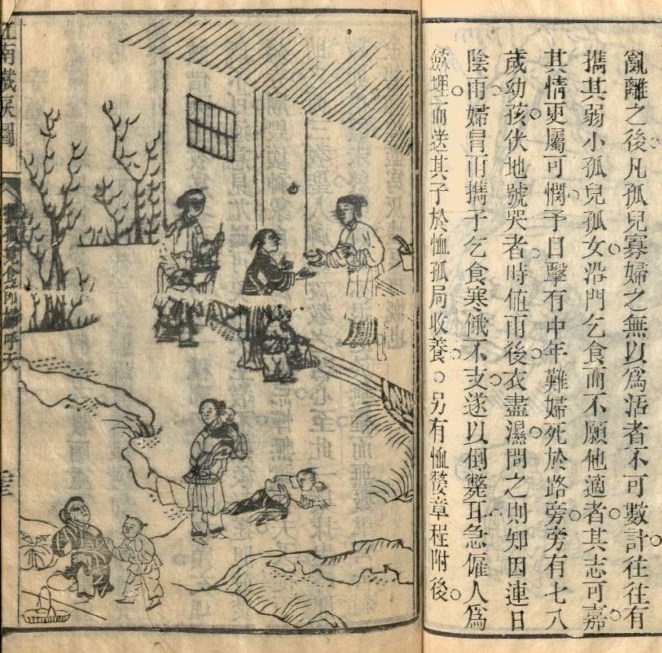 亂離之後凡孤兒寡婦之無以爲活者不可數計往往有
攜其弱小孤兒孤女沿門乞食而不願他適者其志可嘉
其情更屬可憫予目擊有中年難婦死於路旁旁有七八
歲幼孩伏地號哭者時值雨後衣盡濕問之則知因連日
陰雨婦冒雨攜子乞食寒餓不支遂以倒斃耳急僱人爲
斂埋而送其子於恤孤局收養○另有恤嫠章程附後
江南鐵淚圖